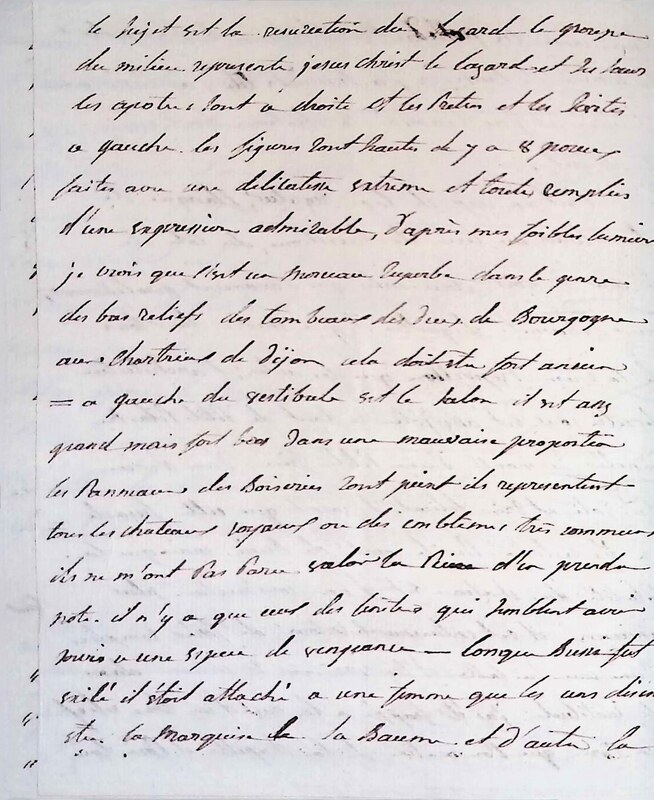 le sujet est la resurection du lazard le groupe
du milieu represente jesus christ le lazard et ses sœurs
les apotres sont a droite et les Pretres et les
a gauche. les figures sont hautes de 7 a 8 pouces
faites avec une delicatesse extreme et toutes remplies
d'une expression admirable, d'après mes foibles lumier
je crois que c'est un morceau superbe dans le genre
des bas reliefs des tombeaux des ducs de Bourgogne
aux Chartreux de dijon cela doit etre fort ancien
= a gauche du vestibule est le salon il est assez
grand mais fort bas dans une mauvaise proportion
les Panneaux des Boiseries sont peint ils representent
tous les chateaux royaux ou des emblemes très communs
ils ne m'ont Pas Paru valoir la Peine d'en prendre
note. il n'y a que ceux des cotés qui semblent avoir
servis a une espece de vengeance — lorsque Bussi fut
exilé il étoit attaché a une femme que les uns disen
etre la Marquise de la Baume et d'autre la